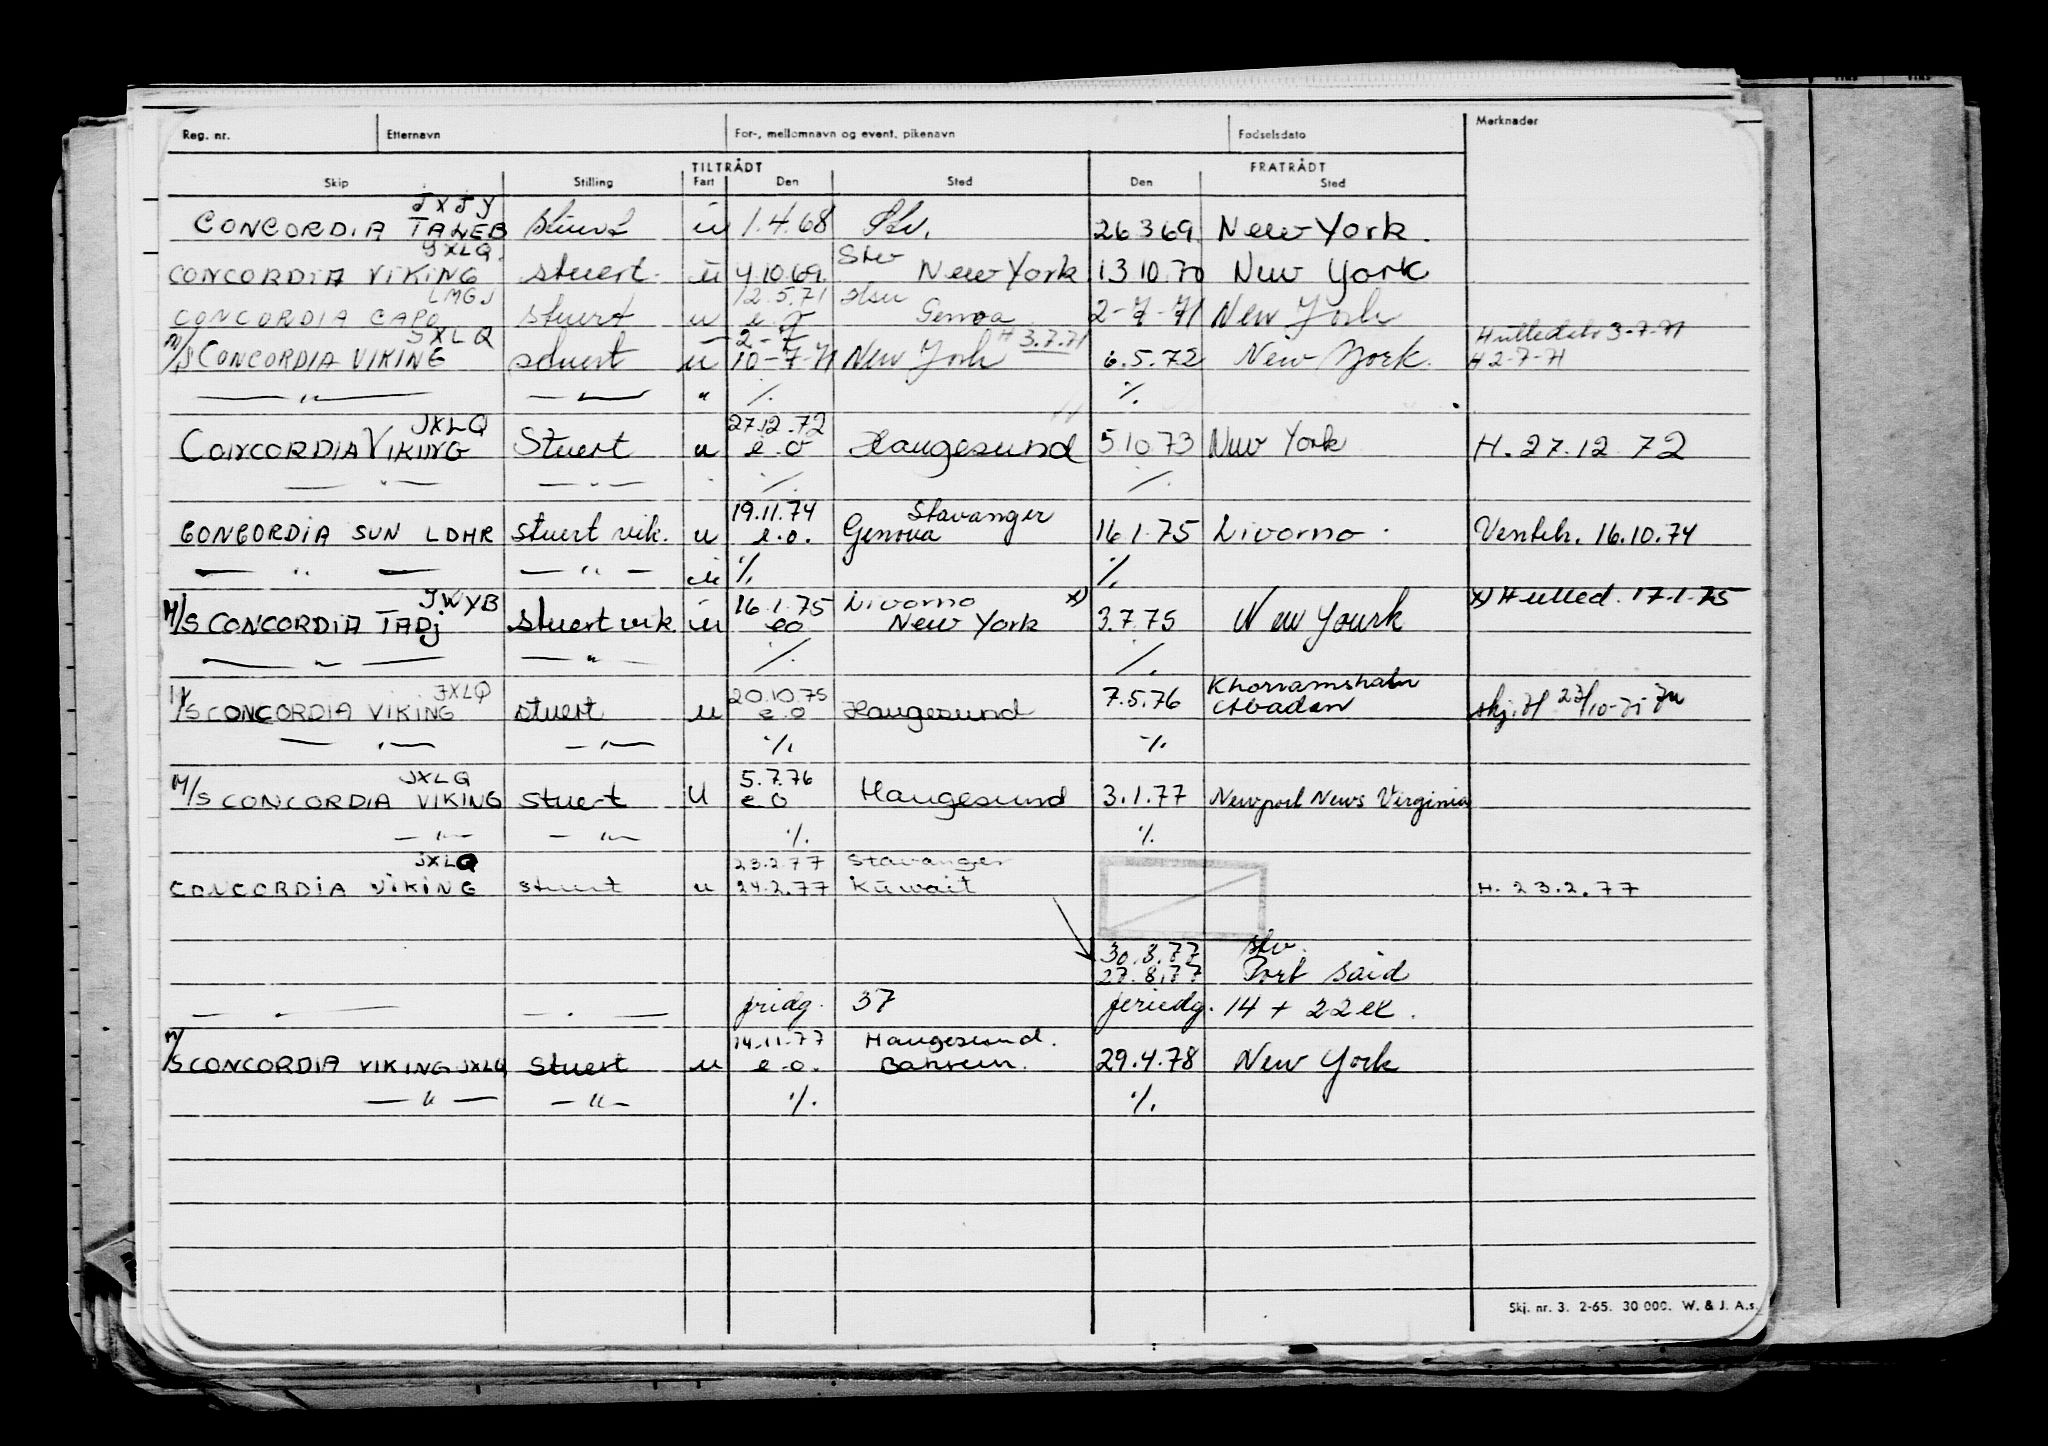 Reg. nr. Etternavn For-, mellomnavn og event. pikenavn Fødselsdato Merknader
TILTRÅDT FRATRÅDT
Skip Stilling Fart Den Sted Den Sted
JXJY
CONCORDIA TALEB stuert u 1.4.68 Stv. 26.3.69 New York.
JXLQ Stv
CONCORDIA VIKING stuert u 4.10.69 New York 13.10.70 New York
LMGJ 12.5.71
CONCORDIA CAPO stuert u e.o Genoa 2-7-71 New York
JXLQ 2-7 H 3.7.71 3-7-71
M/S CONCORDIA VIKING stuert u 10-7-71 New York 6.5.72 New York. H 2-7-71
— " — — " — " %. %.
JXLQ 27.12.72
CONCORDIA VIKING Stuert u e.o Haugesund 5.10.73 New York H. 27.12 72
— " — — " — %. %.
19.11.74 Stavanger
CONCORDIA SUN LDHR stuert vik. u e.o. Genova 16.1.75 Livorno Ventetr. 16.10.74
— " — — " — u %. %.
JWYB 16.1.75 Livorno x) x) Hulled. 17.1.75
M/S CONCORDIA TADj stuert vik. u eo New York 3.7.75 New Yourk
— " — — " — %. %.
JXLQ 20.10.75 Khorramshahr
M/S CONCORDIA VIKING stuert u e o Haugesund 7.5.76 Abadan skj. H 23/10-75
— " — — " — %. %.
JXLQ 5.7.76
M/S CONCORDIA VIKING Stuert U e o Haugesund 3.1.77 Newport News Virginia
— " — — " — %. %.
JXLQ 23.2.77 Stavanger
CONCORDIA VIKING stuert u 24.2.77 Kuwait H. 23.2.77
30.8.77 stv.
27.8.77 Port Said
— " — — " — fridg. 37 feriedg. 14 + 22 ex.
14.11.77 Haugesund.
M/S CONCORDIA VIKING JXLQ Stuert u e.o. Bahrein. 29.4.78 New York
— " — — " — %. %.
Skj. nr. 3. 2-65. 30 000. W. & J. A.s.